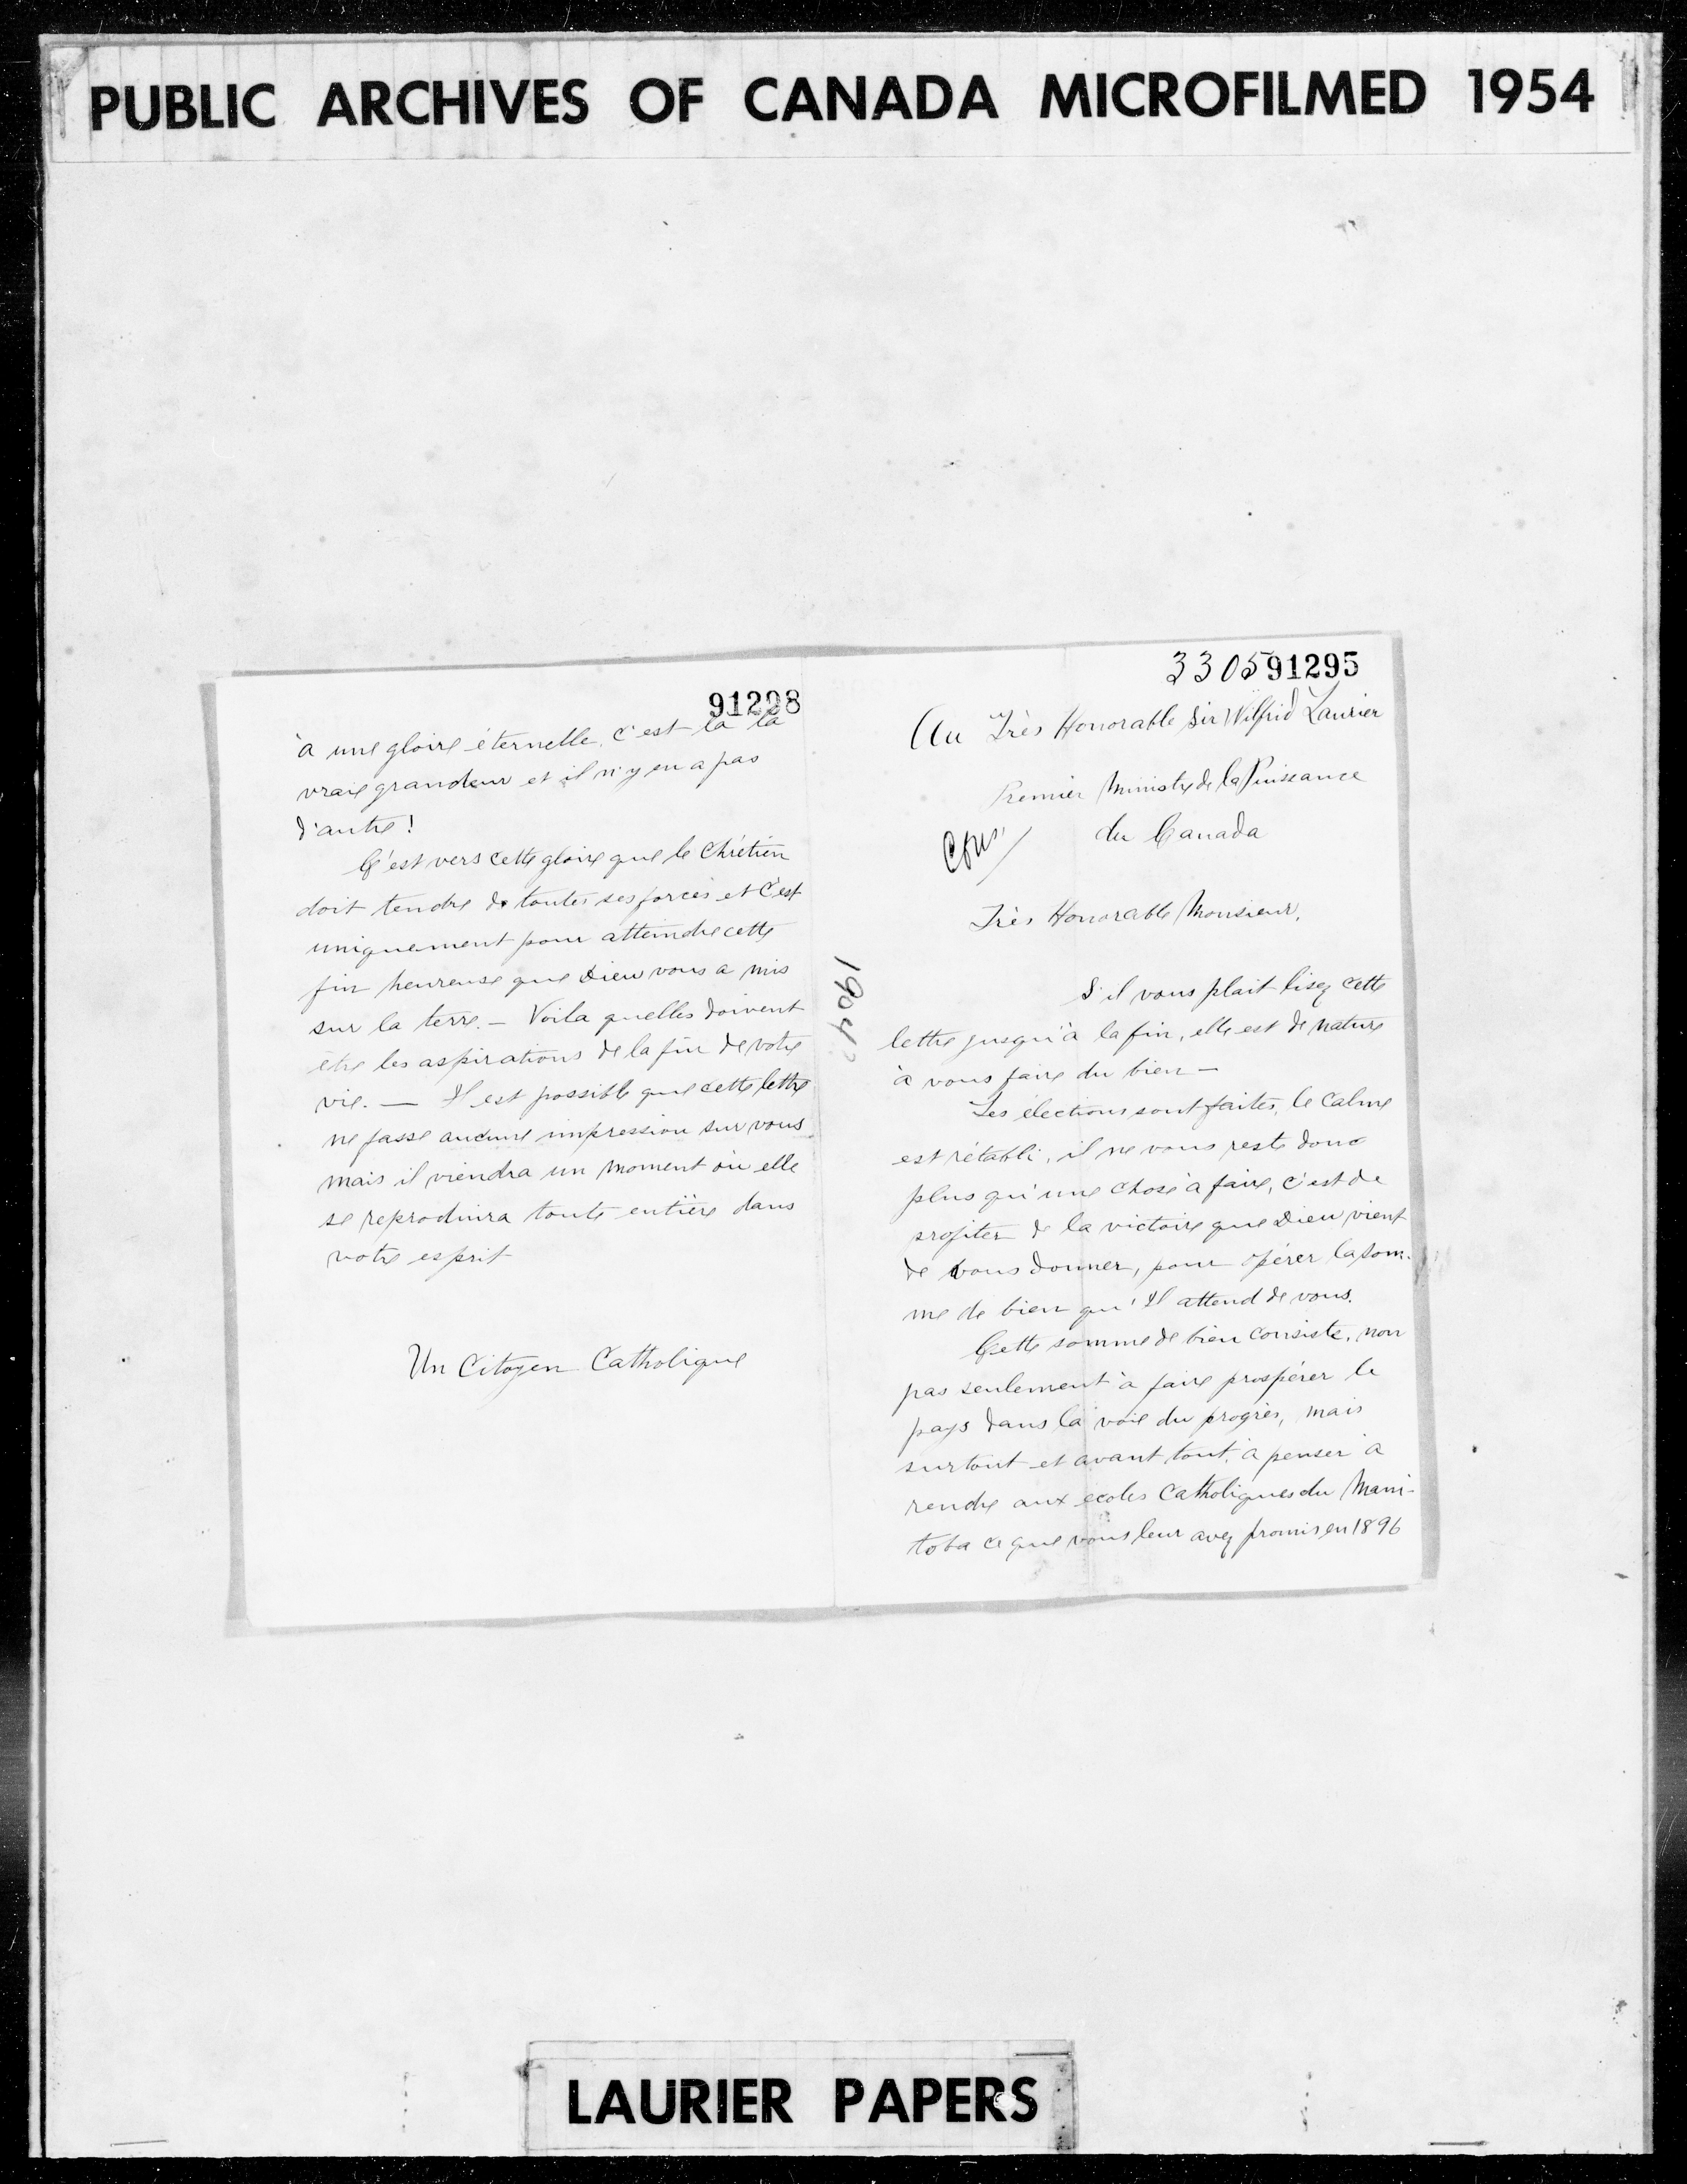 PUBLIC ARCHIVES OF CANADA MICROFILMED 1954
91298
à une gloire éternelle, c'est là la
vraie grandeur et il n'y en a pas
d'autre!
C'est vers cette gloire que le Chrétien
doit tendre de toutes ses forces et c'est
uniquement pour atteindre cette
fin heureuse que Dieu vous a mis
sur la terre. — Voila quelles doivent
être les aspirations de la fin de votre
vie. — Il est possible que cette lettre
ne fasse aucune impression sur vous
mais il viendra un moment où elle
se reproduira toute entière dans
votre esprit
Un Citoyen Catholique
1904
3305 91295
Au Très Honorable Sir Wilfrid Laurier
Premier Ministre de la Puissance
du Canada
Très Honorable Monsieur,
S'il vous plait lisez cette
lettre jusqu'à la fin, elle est de nature
à vous faire du bien —
Les élections sont faites, le calme
est rétabli, il ne vous reste donc
plus qu'une chose à faire, c'est de
profiter de la victoire que Dieu vient
de vous donner, pour opérer la som-
me de bien qu'Il attend de vous.
Cette somme de bien consiste, non
pas seulement à faire prospérer le
pays dans la voie du progrès, mais
surtout et avant tout, à penser à
rendre aux écoles Catholiques du Mani-
toba ce que vous leur avez promis en 1896
LAURIER PAPERS